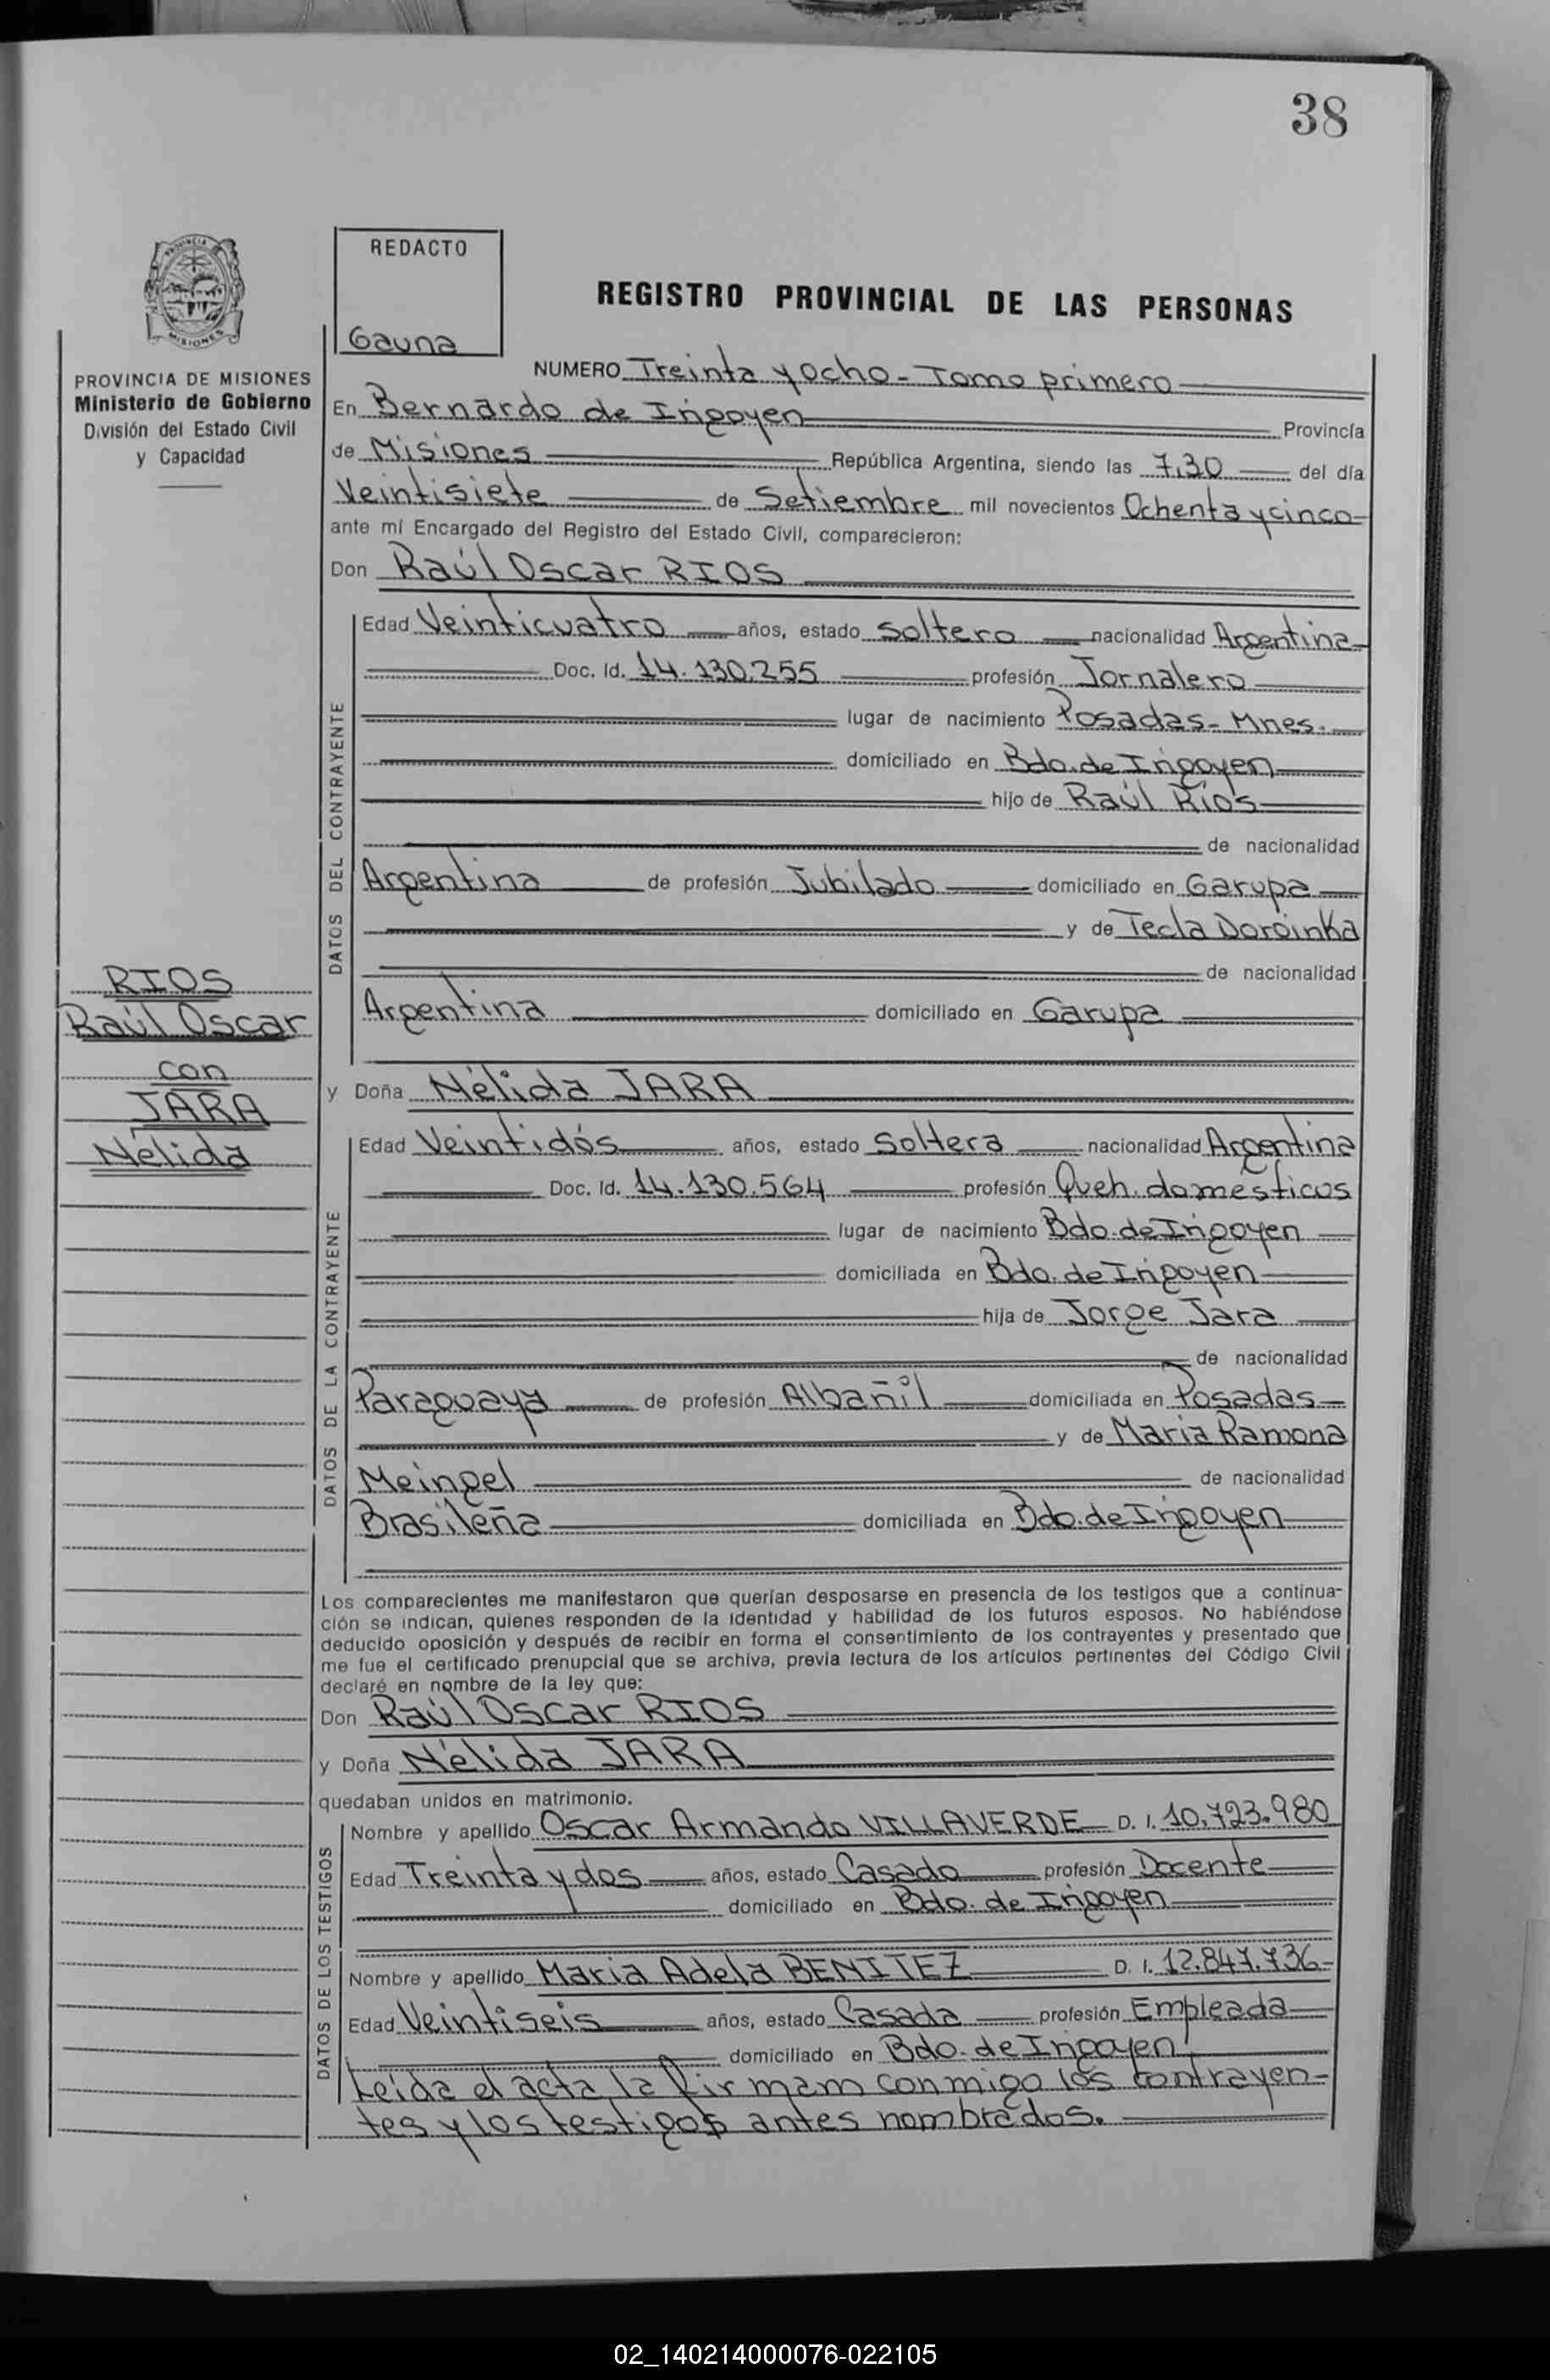 38
REDACTO
Gauna
REGISTRO PROVINCIAL DE LAS PERSONAS
PROVINCIA DE MISIONES
Ministerio de Gobierno
División del Estado Civil
y Capacidad
NUMERO Treinta y ocho - Tomo primero
En Bernardo de Irigoyen Provincia
de Misiones República Argentina, siendo las 7,30 del día
Veintisiete de Setiembre mil novecientos Ochenta y cinco
ante mí Encargado del Registro del Estado Civil, comparecieron:
Don Raúl Oscar RIOS
DATOS DEL CONTRAYENTE
Edad Veinticuatro años, estado Soltero nacionalidad Argentina
Doc. Id. 14.130.255 profesión Jornalero
lugar de nacimiento Posadas - Mnes.
domiciliado en Bdo. de Irigoyen
hijo de Raúl Ríos
de nacionalidad
Argentina de profesión Jubilado domiciliado en Garupa
y de Tecla Doroinka
de nacionalidad
Argentina domiciliado en Garupa
RIOS
Raúl Oscar
con
JARA
Nélida
y Doña Nélida JARA
DATOS DE LA CONTRAYENTE
Edad Veintidós años, estado Soltera nacionalidad Argentina
Doc. Id. 14.130.564 profesión Queh. domésticos
lugar de nacimiento Bdo. de Irigoyen
domiciliada en Bdo. de Irigoyen
hija de Jorge Jara
de nacionalidad
Paraguaya de profesión Albañil domiciliada en Posadas
y de Maria Ramona
Meingel de nacionalidad
Brasileña domiciliada en Bdo. de Irigoyen
Los comparecientes me manifestaron que querían desposarse en presencia de los testigos que a continua-
ción se indican, quienes responden de la identidad y habilidad de los futuros esposos. No habiéndose
deducido oposición y después de recibir en forma el consentimiento de los contrayentes y presentado que
me fue el certificado prenupcial que se archiva, previa lectura de los artículos pertinentes del Código Civil
declaré en nombre de la ley que:
Don Raúl Oscar RIOS
y Doña Nélida JARA
quedaban unidos en matrimonio.
DATOS DE LOS TESTIGOS
Nombre y apellido Oscar Armando VILLAVERDE D. I. 10.723.980
Edad Treinta y dos años, estado Casado profesión Docente
domiciliado en Bdo. de Irigoyen
Nombre y apellido Maria Adela BENITEZ D. I. 12.847.736-
Edad Veintiseis años, estado Casada profesión Empleada
domiciliado en Bdo. de Irigoyen
Leida el acta, la firmam conmigo los contrayen-
tes y los testigos antes nombrados.
02_140214000076-022105